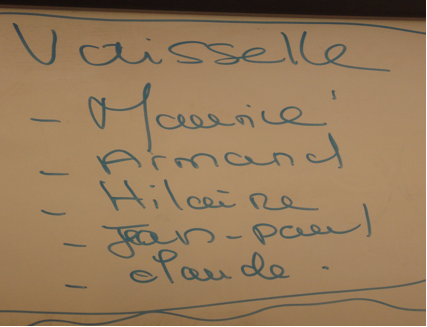 Vaisselle
- Maurice
- Armand
- Hilaire
- Jean-paul
- Claude.